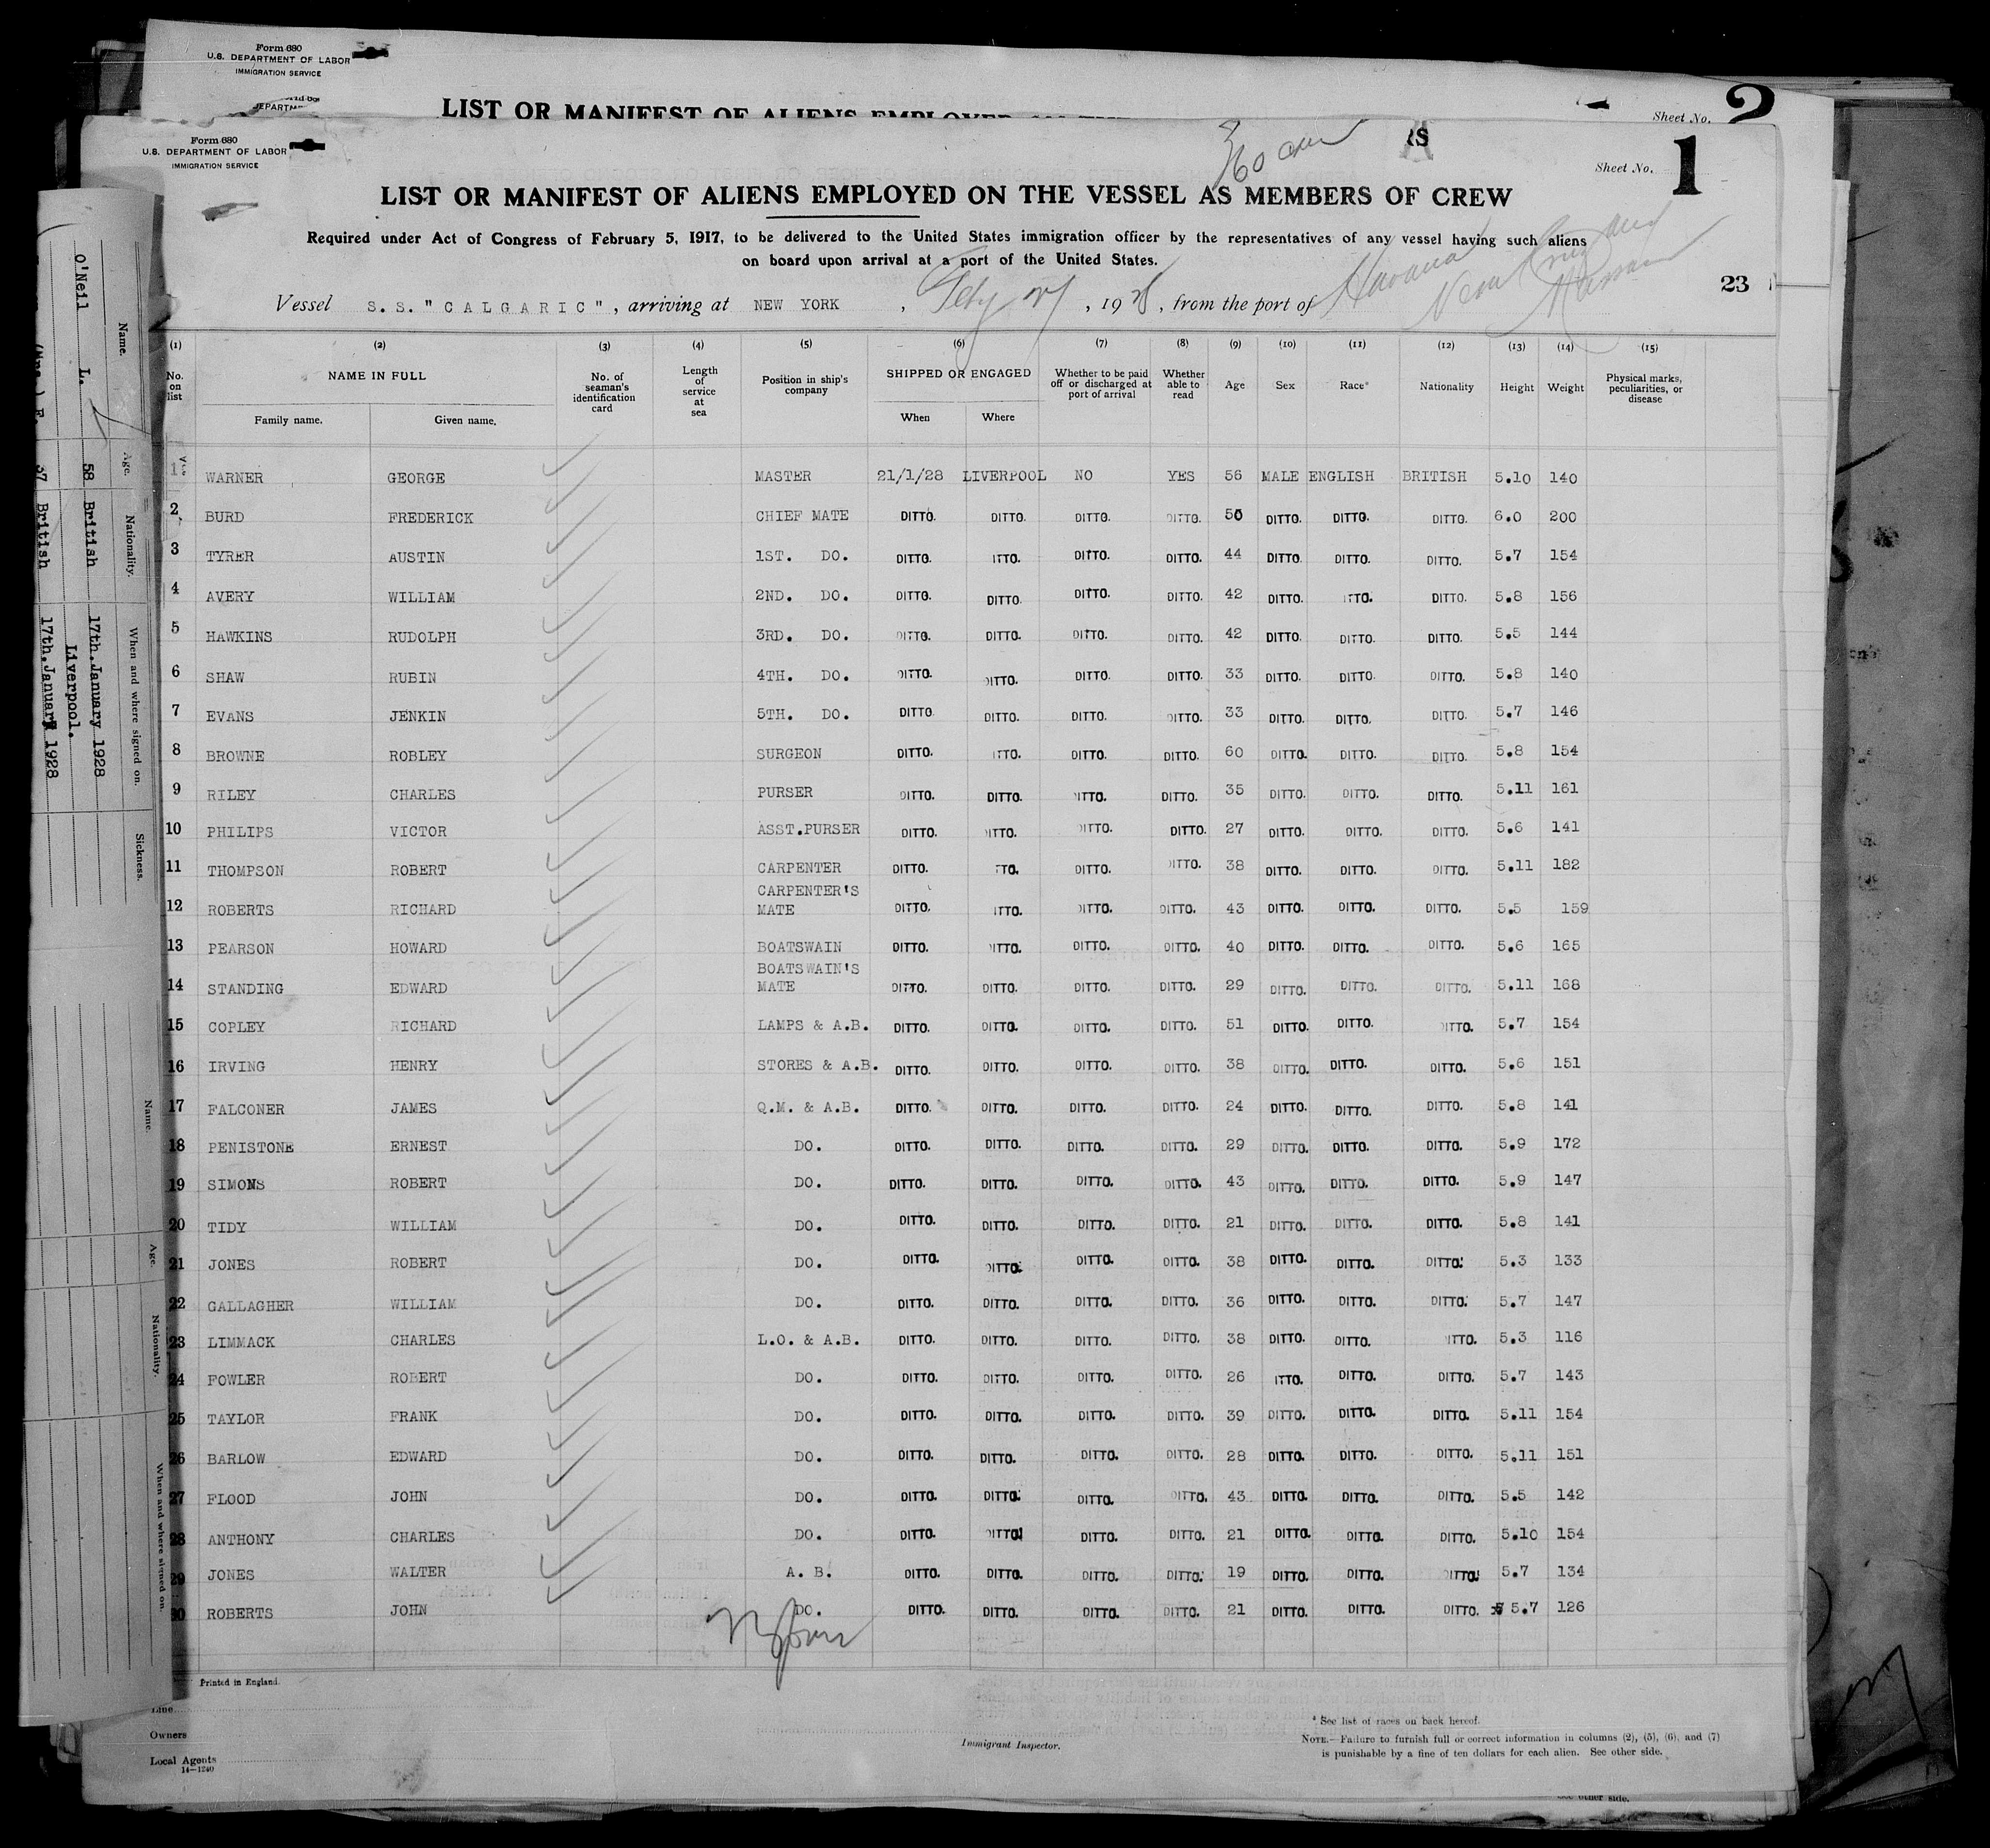 Form 680
U.S. DEPARTMENT OF LABOR
IMMIGRATION SERVICE
LIST OR MANIFEST OF ALIENS EMPLOYED
Sheet No. 2
Form 680
U.S. DEPARTMENT OF LABOR
IMMIGRATION SERVICE
RS
Sheet No. 1
LIST OR MANIFEST OF ALIENS EMPLOYED ON THE VESSEL AS MEMBERS OF CREW
Required under Act of Congress of February 5, 1917, to be delivered to the United States immigration officer by the representatives of any vessel having such aliens
on board upon arrival at a port of the United States.
23
Vessel S.S. "CALGARIC", arriving at NEW YORK, Feby 1928, from the port of Havana
(1) (2) (3) (4) (5) (6) (7) (8) (9) (10) (11) (12) (13) (14) (15)
No. on list NAME IN FULL Family name. Given name. No. of seaman's identification card Length of service at sea Position in ship's company SHIPPED OR ENGAGED When Where Whether to be paid off or discharged at port of arrival Whether able to read Age Sex Race* Nationality Height Weight Physical marks, peculiarities, or disease
1 WARNER GEORGE MASTER 21/1/28 LIVERPOOL NO YES 56 MALE ENGLISH BRITISH 5.10 140
2 BURD FREDERICK CHIEF MATE DITTO. DITTO. DITTO. DITTO. 50 DITTO. DITTO. DITTO. 6.0 200
3 TYRER AUSTIN 1ST. DO. DITTO. DITTO. DITTO. DITTO. 44 DITTO. DITTO. DITTO. 5.7 154
4 AVERY WILLIAM 2ND. DO. DITTO. DITTO. DITTO. DITTO. 42 DITTO. DITTO. DITTO. 5.8 156
5 HAWKINS RUDOLPH 3RD. DO. DITTO. DITTO. DITTO. DITTO. 42 DITTO. DITTO. DITTO. 5.5 144
6 SHAW RUBIN 4TH. DO. DITTO. DITTO. DITTO. DITTO. 33 DITTO. DITTO. DITTO. 5.8 140
7 EVANS JENKIN 5TH. DO. DITTO. DITTO. DITTO. DITTO. 33 DITTO. DITTO. DITTO. 5.7 146
8 BROWNE ROBLEY SURGEON DITTO. DITTO. DITTO. DITTO. 60 DITTO. DITTO. DITTO. 5.8 154
9 RILEY CHARLES PURSER DITTO. DITTO. DITTO. DITTO. 35 DITTO. DITTO. DITTO. 5.11 161
10 PHILIPS VICTOR ASST.PURSER DITTO. DITTO. DITTO. DITTO. 27 DITTO. DITTO. DITTO. 5.6 141
11 THOMPSON ROBERT CARPENTER DITTO. DITTO. DITTO. DITTO. 38 DITTO. DITTO. DITTO. 5.11 182
12 ROBERTS RICHARD CARPENTER'S MATE DITTO. DITTO. DITTO. DITTO. 43 DITTO. DITTO. DITTO. 5.5 159
13 PEARSON HOWARD BOATSWAIN DITTO. DITTO. DITTO. DITTO. 40 DITTO. DITTO. DITTO. 5.6 165
14 STANDING EDWARD BOATSWAIN'S MATE DITTO. DITTO. DITTO. DITTO. 29 DITTO. DITTO. DITTO. 5.11 168
15 COPLEY RICHARD LAMPS & A.B. DITTO. DITTO. DITTO. DITTO. 51 DITTO. DITTO. DITTO. 5.7 154
16 IRVING HENRY STORES & A.B. DITTO. DITTO. DITTO. DITTO. 38 DITTO. DITTO. DITTO. 5.6 151
17 FALCONER JAMES Q.M. & A.B. DITTO. DITTO. DITTO. DITTO. 24 DITTO. DITTO. DITTO. 5.8 141
18 PENISTONE ERNEST DO. DITTO. DITTO. DITTO. DITTO. 29 DITTO. DITTO. DITTO. 5.9 172
19 SIMONS ROBERT DO. DITTO. DITTO. DITTO. DITTO. 43 DITTO. DITTO. DITTO. 5.9 147
20 TIDY WILLIAM DO. DITTO. DITTO. DITTO. DITTO. 21 DITTO. DITTO. DITTO. 5.8 141
21 JONES ROBERT DO. DITTO. DITTO. DITTO. DITTO. 38 DITTO. DITTO. DITTO. 5.3 133
22 GALLAGHER WILLIAM DO. DITTO. DITTO. DITTO. DITTO. 36 DITTO. DITTO. DITTO. 5.7 147
23 LIMMACK CHARLES L.O. & A.B. DITTO. DITTO. DITTO. DITTO. 38 DITTO. DITTO. DITTO. 5.3 116
24 FOWLER ROBERT DO. DITTO. DITTO. DITTO. DITTO. 26 DITTO. DITTO. DITTO. 5.7 143
25 TAYLOR FRANK DO. DITTO. DITTO. DITTO. DITTO. 39 DITTO. DITTO. DITTO. 5.11 154
26 BARLOW EDWARD DO. DITTO. DITTO. DITTO. DITTO. 28 DITTO. DITTO. DITTO. 5.11 151
27 FLOOD JOHN DO. DITTO. DITTO. DITTO. DITTO. 43 DITTO. DITTO. DITTO. 5.5 142
28 ANTHONY CHARLES DO. DITTO. DITTO. DITTO. DITTO. 21 DITTO. DITTO. DITTO. 5.10 154
29 JONES WALTER A. B. DITTO. DITTO. DITTO. DITTO. 19 DITTO. DITTO. DITTO. 5.7 134
30 ROBERTS JOHN DO. DITTO. DITTO. DITTO. DITTO. 21 DITTO. DITTO. DITTO. 5.7 126
Printed in England.
Line
Owners
Local Agents
14—1240
Immigrant Inspector.
* See list of races on back hereof.
NOTE.—Failure to furnish full or correct information in columns (2), (5), (6), and (7)
is punishable by a fine of ten dollars for each alien. See other side.
see other side.
Name. Age. Nationality. When and where signed on. Sickness.
O'Neil L. 58 British 17th.January 1928
Liverpool.
37 British 17th.January 1928
Name. Age. Nationality. When and where signed on.